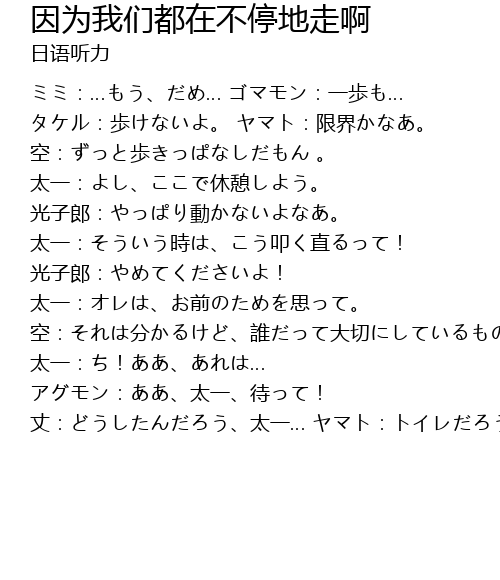 因为我们都在不停地走啊
日语听力
ミミ：...もう、だめ... ゴマモン：一歩も...
タケル：歩けないよ。 ヤマト：限界かなあ。
空：ずっと歩きっぱなしだもん 。
太一：よし、ここで休憩しよう。
光子郎：やっぱり動かないよなあ。
太一：そういう時は、こう叩く直るって！
光子郎：やめてくださいよ！
太一：オレは、お前のためを思って。
空：それは分かるけど、誰だって大切にしているもの
太一：ち！ああ、あれは...
アグモン：ああ、太一、待って！
丈：どうしたんだろう、太一... ヤマト：トイレだろう